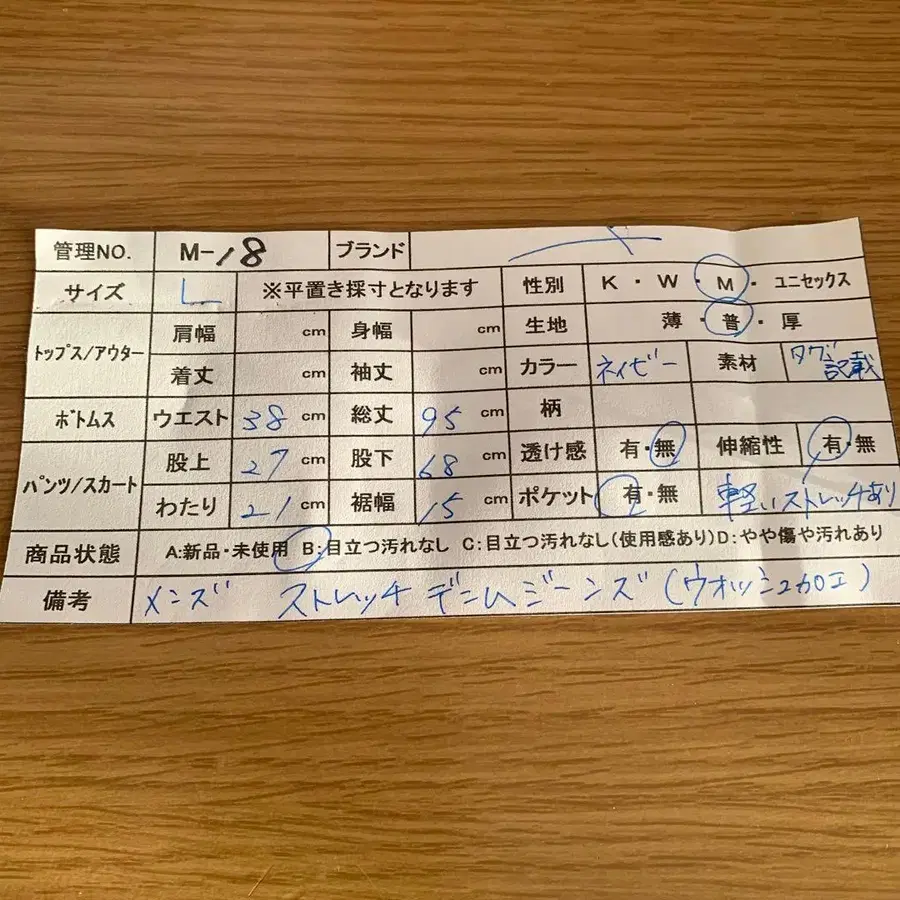 管理NO. M-18 ブランド
サイズ L ※平置き採寸となります 性別 K・W・M・ユニセックス
トップス/アウター 肩幅 cm 身幅 cm 生地 薄・普・厚
着丈 cm 袖丈 cm カラー ネイビー 素材 タグ記載
ボトムス ウエスト 38 cm 総丈 95 cm 柄
パンツ/スカート 股上 27 cm 股下 68 cm 透け感 有・無 伸縮性 有・無
わたり 21 cm 裾幅 15 cm ポケット 有・無 軽いストレッチあり
商品状態 A:新品・未使用 B:目立つ汚れなし C:目立つ汚れなし(使用感あり) D:やや傷や汚れあり
備考 メンズ ストレッチデニムジーンズ(ウォッシュ加工)